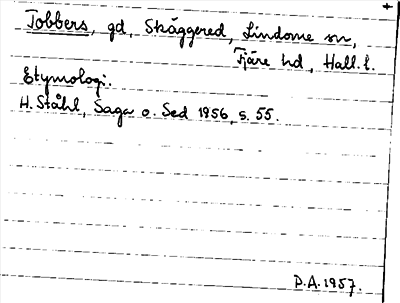 Tobbers, gd, Skäggered, Lindome sn,
Fjäre hd, Hall. l.
Etymologi.
H. Ståhl, Saga o. Sed 1956, s. 55.
D.A. 1957.